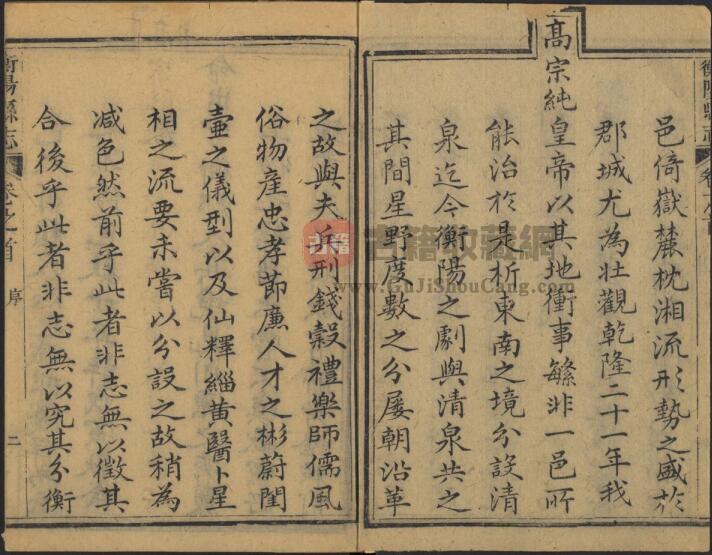 衡陽縣志
邑倚嶽麓枕湘流形勢之盛於
郡城尤為壯觀乾隆二十一年我
高宗純皇帝以其地衝事繁非一邑所
能治於是析東南之境分設清
泉迄今衡陽之劇與清泉共之
其間星野度數之分屢朝沿革
之故與夫兵刑錢穀禮樂師儒風
俗物產忠孝節廉人才之彬蔚閨
壼之儀型以及仙釋緇黃醫卜星
相之流要未嘗以分設之故稍為
減色然前乎此者非志無以徵其
合後乎此者非志無以究其分衡
衡陽縣志
卷之首
序
二
古籍
古籍收藏網
www.GuJiShouCang.com